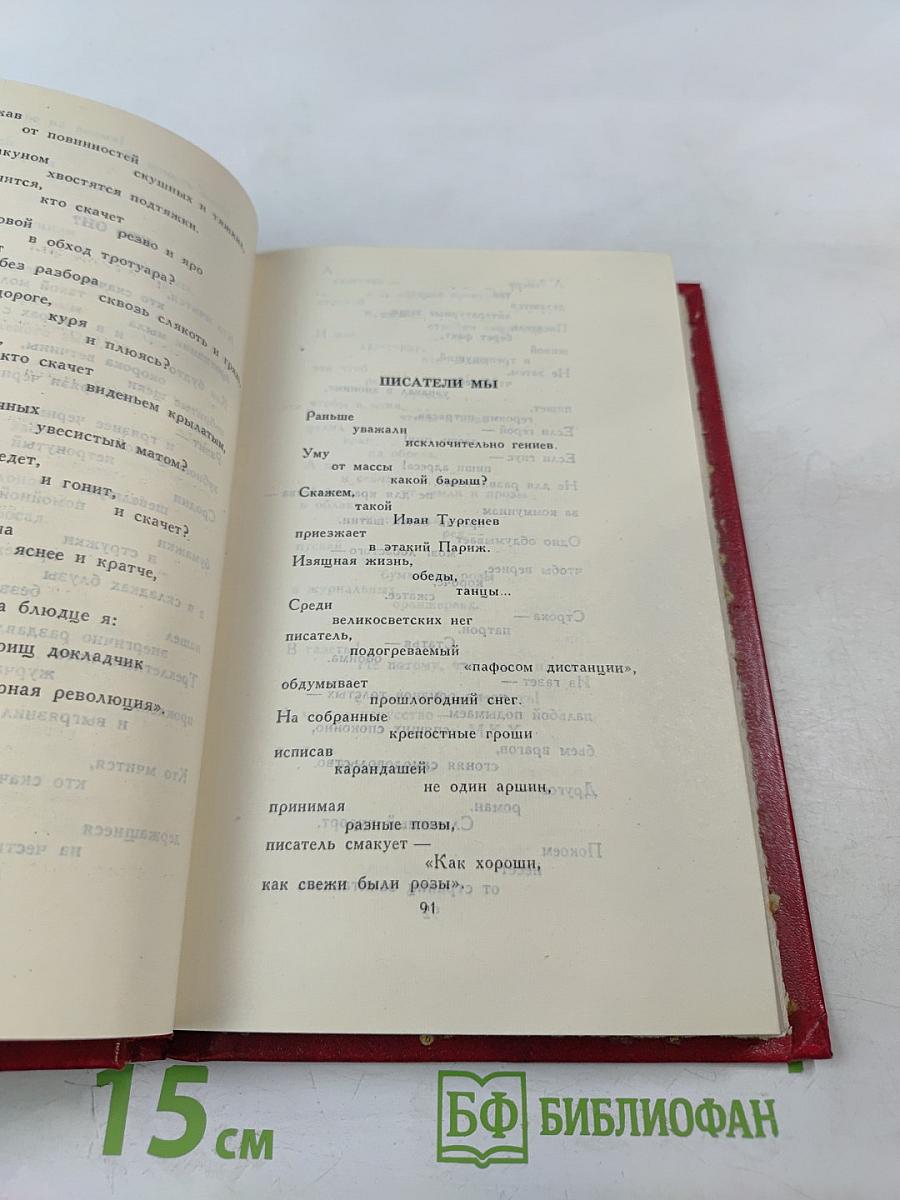 от повинностей
скушных и тяжких,
хвостятся подтяжки.
кто скачет
резво и яро
в обход тротуара?
без разбора
сквозь слякоть и грязь,
куря
и плюясь?
кто скачет
виденьем крылатым,
увесистым матом?
и гонит,
и скачет?
яснее и кратче,
блюдце я:
докладчик
революция».
ПИСАТЕЛИ МЫ
Раньше
уважали
исключительно гениев.
Уму
от массы
какой барыш?
Скажем,
такой
Иван Тургенев
приезжает
в этакий Париж.
Изящная жизнь,
обеды,
танцы...
Среди
великосветских нег
писатель,
подогреваемый
«пафосом дистанции»,
обдумывает
прошлогодний снег.
На собранные
крепостные гроши
исписав
карандашей
не один аршин,
принимая
разные позы,
писатель смакует —
«Как хороши,
как свежи были розы».
91
15 см
БФ БИБЛИОФАН